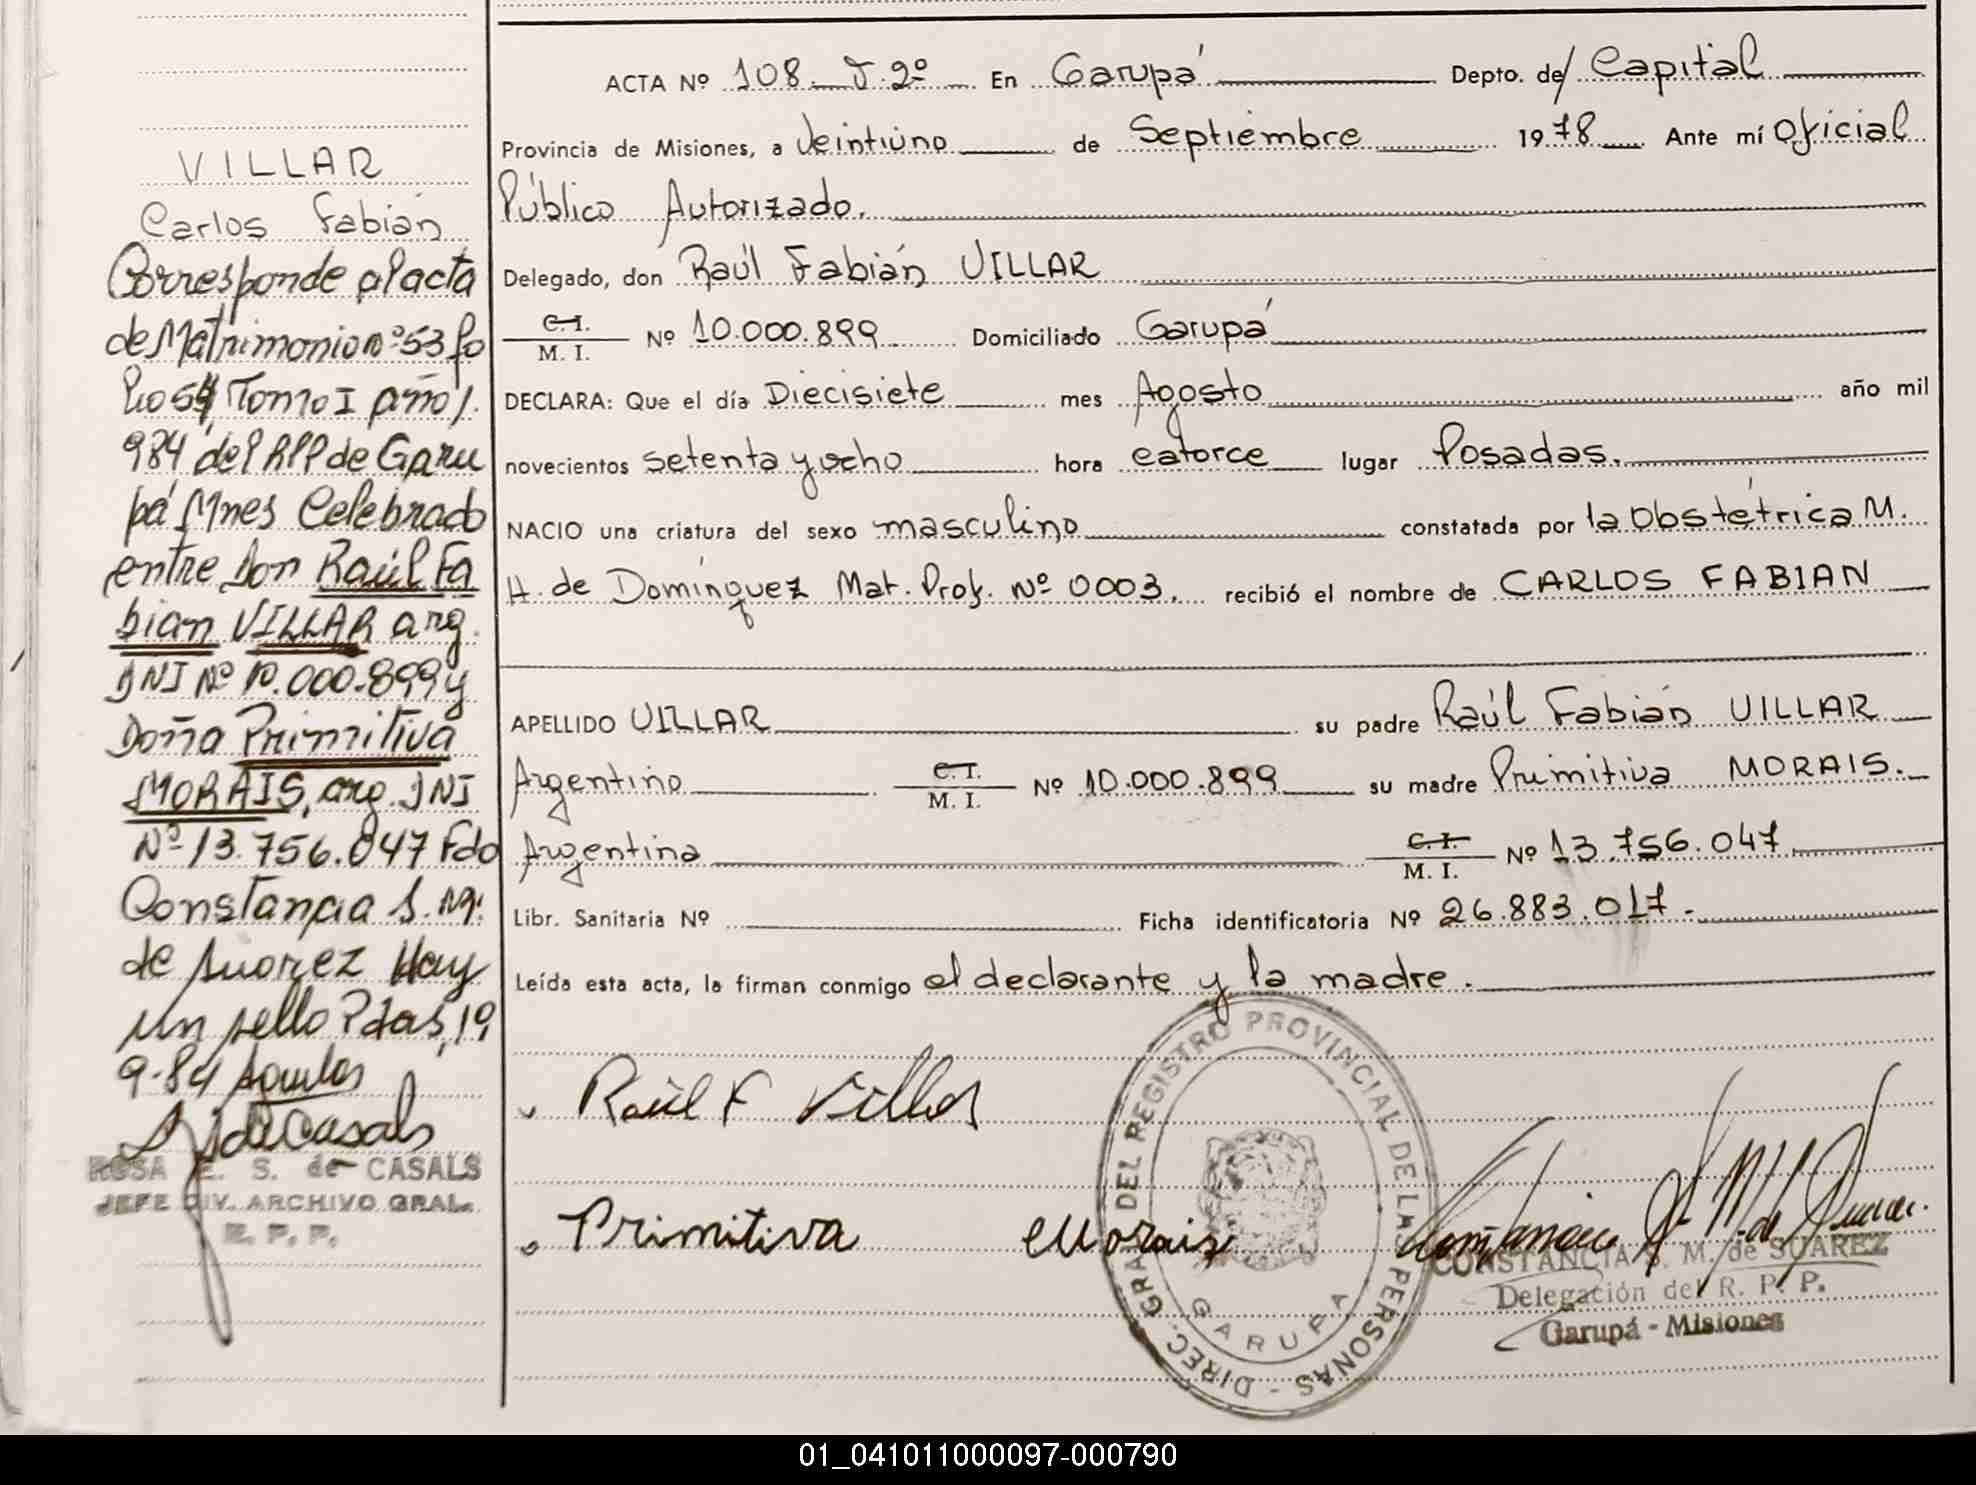 VILLAR
Carlos Fabián
Corresponde al acta
de Matrimonio nº 53 fo
lio 54, Tomo I año 1.
984 del RPP de Garu
pá Mnes Celebrado
entre Don Raúl Fa
bian VILLAR arg.
DNI Nº 10.000.899 y
Doña Primitiva
MORAIS, arg. DNI
Nº 13.756.047 Fdo
Constancia S. M.
de Suarez Hay
un sello Pdas, 19
9-84
ROSA E. S. de CASALS
JEFE DIV. ARCHIVO GRAL.
R. P. P.
ACTA Nº 108. T. 2º En Garupá Depto. de/ Capital
Provincia de Misiones, a Veintiuno de Septiembre 1978 Ante mí Oficial
Público Autorizado.
Delegado, don Raúl Fabián VILLAR
C.I. M. I. Nº 10.000.899 Domiciliado Garupá
DECLARA: Que el día Diecisiete mes Agosto año mil
novecientos setenta y ocho hora catorce lugar Posadas.
NACIO una criatura del sexo masculino constatada por la Obstétrica M.
H. de Domínguez Mat. Prof. Nº 0003. recibió el nombre de CARLOS FABIAN
APELLIDO VILLAR su padre Raúl Fabián VILLAR
Argentino C.I. M. I. Nº 10.000.899 su madre Primitiva MORAIS.
Argentina C.I. M. I. Nº 13.756.047
Libr. Sanitaria Nº Ficha identificatoria Nº 26.883.017.
Leída esta acta, la firman conmigo el declarante y la madre.
Raúl F Villar
Primitiva Morais
DIREC. GRAL. DEL REGISTRO PROVINCIAL DE LAS PERSONAS -
GARUPA
CONSTANCIA S. M. de SUAREZ
Delegación del R. P. P.
Garupá - Misiones
01_041011000097-000790